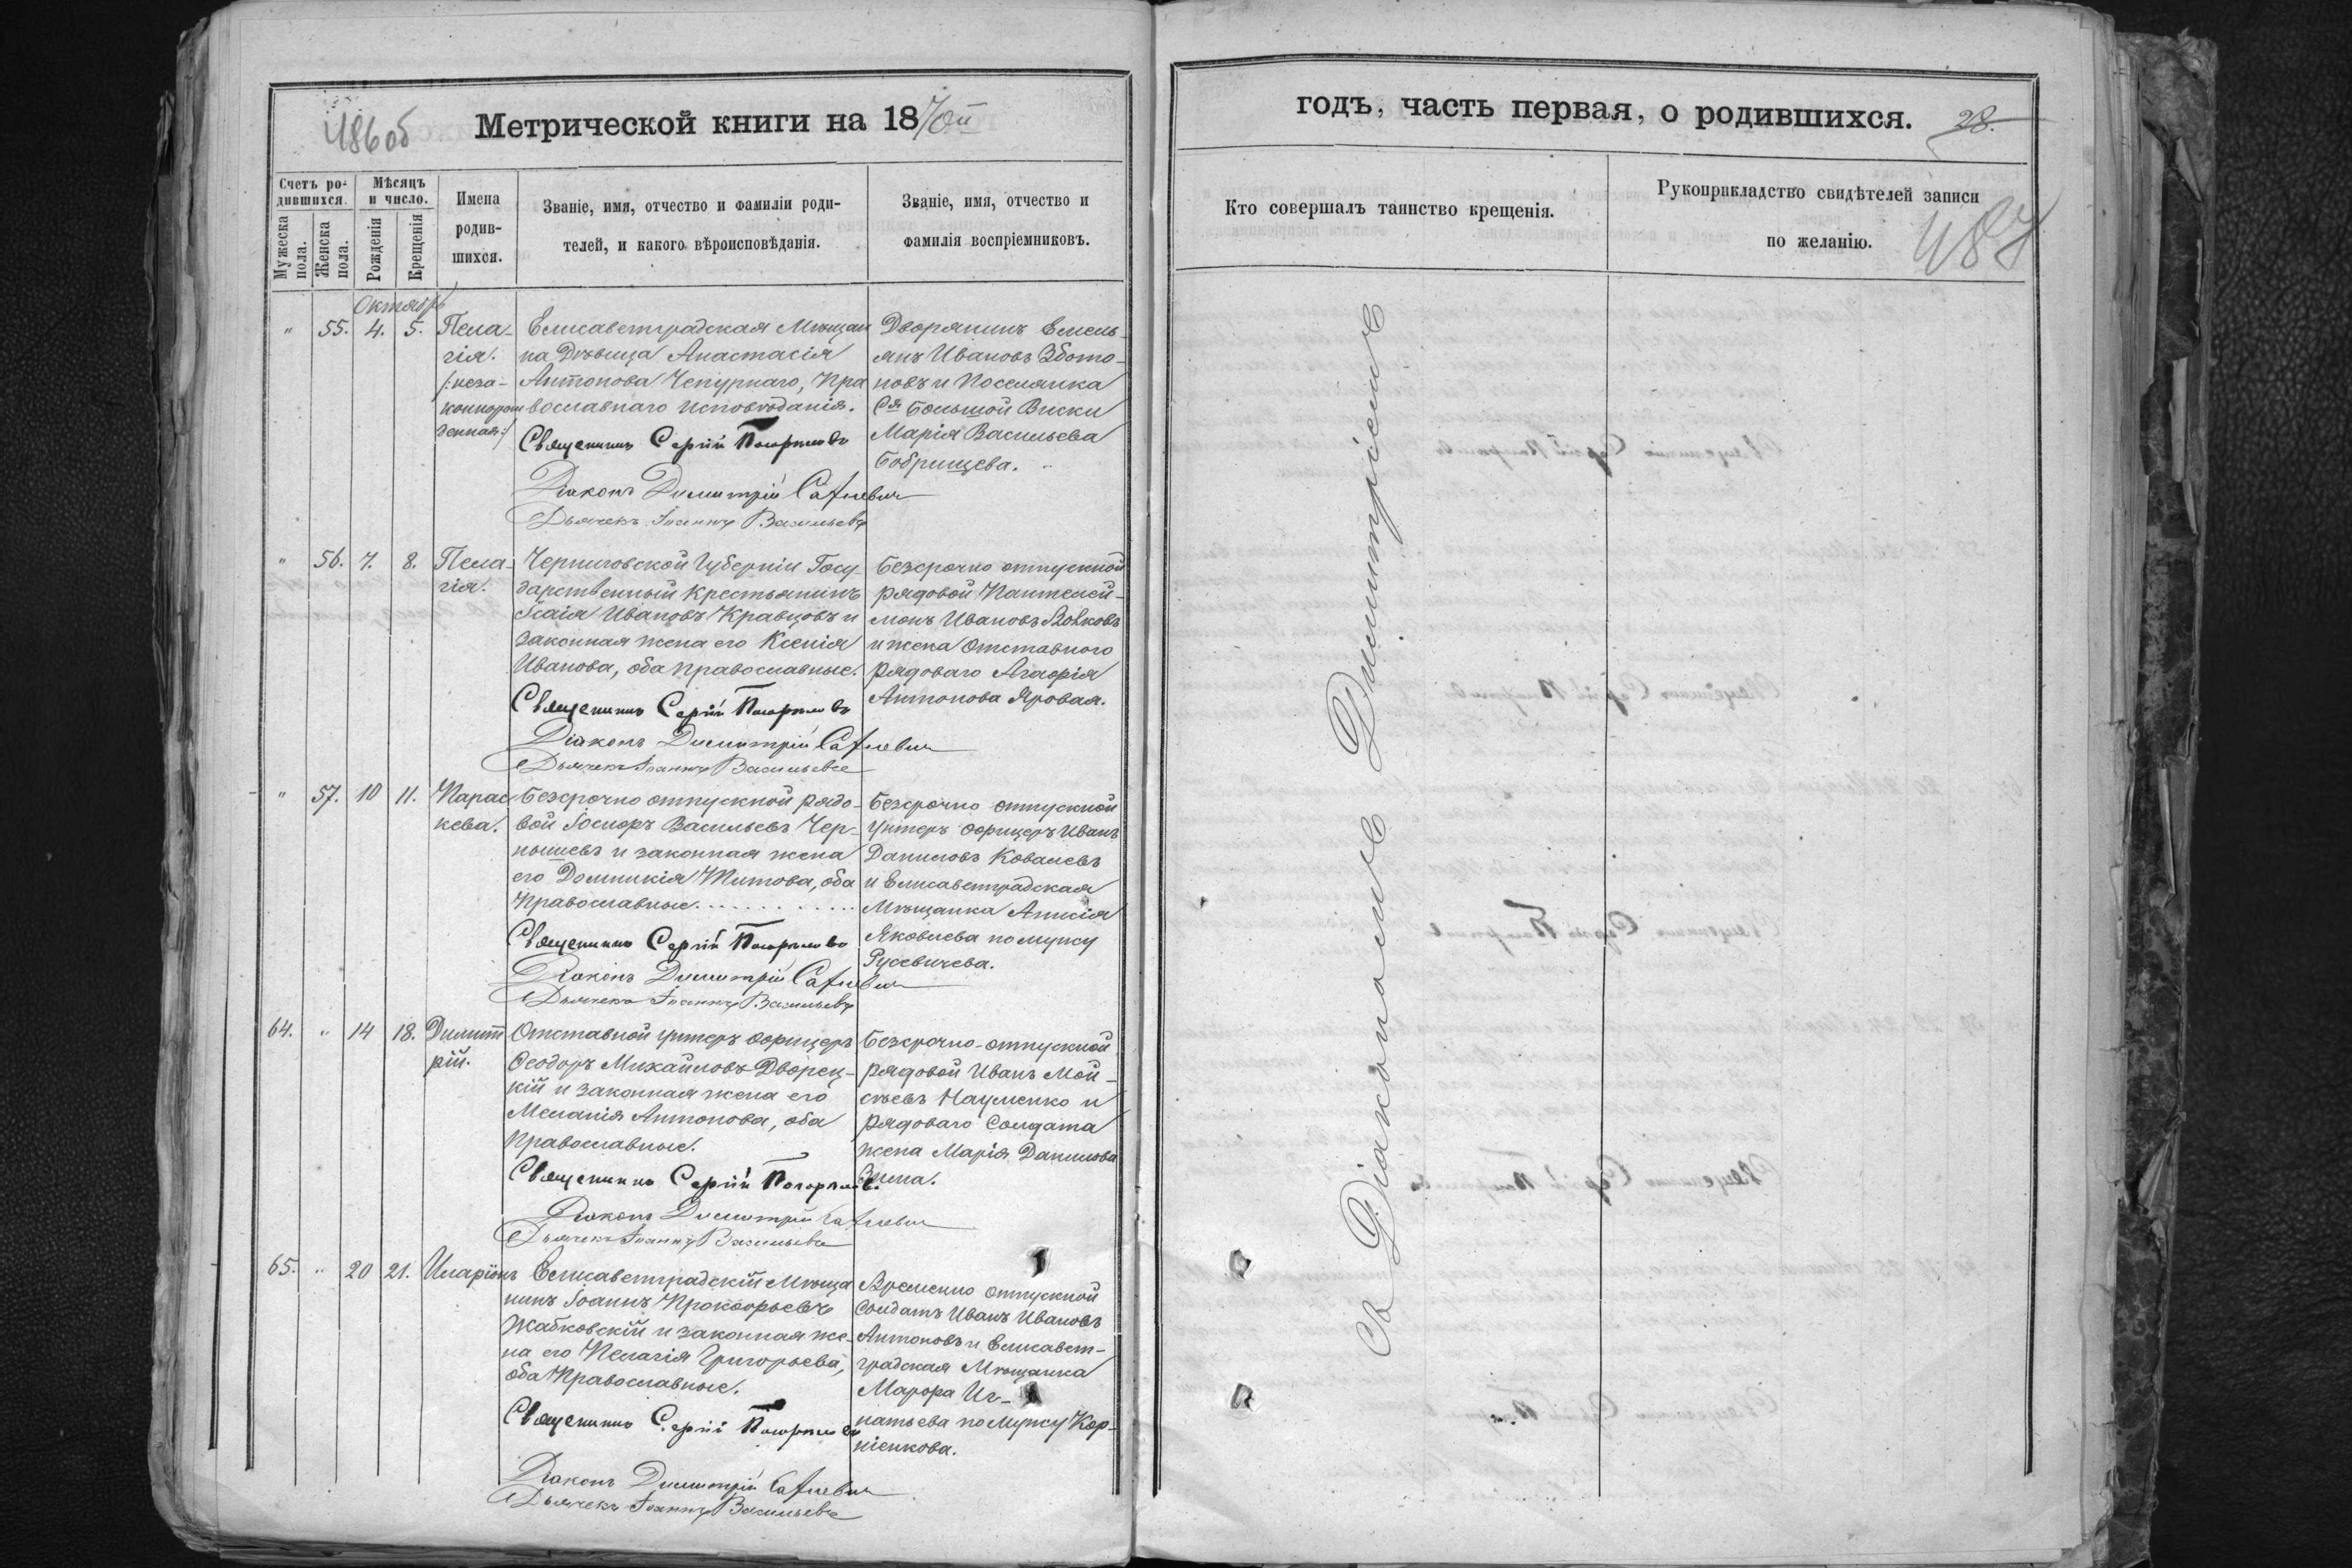 486об
Метрической книги на 1870й
Счетъ ро-
дившихся.
Мѣсяцъ
и число.
Мужеска
пола.
Женска
пола.
Рожденія
Крещенія
Имена
родив-
шихся.
Званіе, имя, отчество и фамиліи роди-
телей, и какого вѣроисповѣданія.
Званіе, имя, отчество и
фамилія воспріемниковъ.
Октябрь
" 55. 4. 5.
Пела-
гія.
/:неза-
коннорож
денная:/
Елисаветградская Мѣщан
ка Дѣвица Анастасія
Антонова Чепурнаго, Пра
вославнаго исповѣданія.
Священникъ Сергій
Діаконъ Димитрій
Дьячекъ Іоаннъ Васильевъ
Дворянинъ Емель-
янъ Ивановъ
новъ и Поселянка
Сл Большой Виски
Марія Васильева
Бобрищева.
" 56. 7. 8.
Пела-
гія.
Черниговской Губерніи Госу-
дарственный крестьянинъ
Ісаія Ивановъ Кравцовъ и
законная жена его Ксенія
Иванова, оба православные.
Священникъ Сергій
Діаконъ Димитрій
Дьячекъ Іоаннъ Васильевъ
Безсрочно отпускной
рядовой Пантелей-
монъ Ивановъ Волковъ
и жена Отставного
рядоваго Агафія
Антонова Яровая.
" 57. 10 11.
Парас
кева.
Безсрочно отпускной рядо-
вой Іосифъ Васильевъ Чер-
нышевъ и законная жена
его Домникія Титова, оба
Православные.
Священникъ Сергій
Діаконъ Димитрій
Дьячекъ Іоаннъ Васильевъ
Безсрочно отпускной
Унтеръ офицеръ Иванъ
Даниловъ Ковалевъ
и Елисаветградская
Мѣщанка Анисія
Яковлева по мужу
Русевичева.
64. " 14 18.
Димит
рій.
Отставной Унтеръ офицеръ
Ѳеодоръ Михайловъ Дворец-
кій и законная жена его
Меланія Антонова, оба
Православные.
Священникъ Сергій
Діаконъ Димитрій
Дьячекъ Іоаннъ Васильевъ
Безсрочно-отпускной
рядовой Иванъ Мой-
сѣевъ Науменко и
рядоваго Солдата
жена Марія Данилова
65. " 20 21.
Иларіонъ
Елисаветградскій Мѣща
нинъ Іоаннъ Прокофьевъ
Жабковскій и законная же-
на его Пелагія Григорьева,
оба Православные.
Священникъ Сергій
Діаконъ Димитрій
Дьячекъ Іоаннъ Васильевъ
Временно отпускной
Солдатъ Иванъ Ивановъ
Антоновъ и Елисавет-
градская Мѣщанка
Марфа Иг-
натьева по мужу Кор-
ніенкова.
годъ, часть первая, о родившихся.
28.
Кто совершалъ таинство крещенія.
Рукоприкладство свидѣтелей записи
по желанію.
487
Съ Діакономъ Димитріемъ